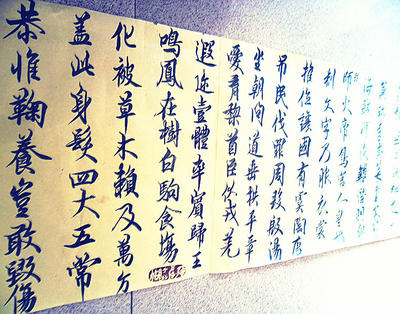 師火帝鳥官人皇
制文字乃服衣裳
推位讓國有虞陶唐
吊民伐罪周發殷湯
坐朝問道垂拱平章
愛育黎首臣伏戎羌
遐迩壹體率賓歸王
鳴鳳在樹白駒食塲
化被草木賴及萬方
盖此身髮四大五常
恭惟鞠養豈敢毀傷